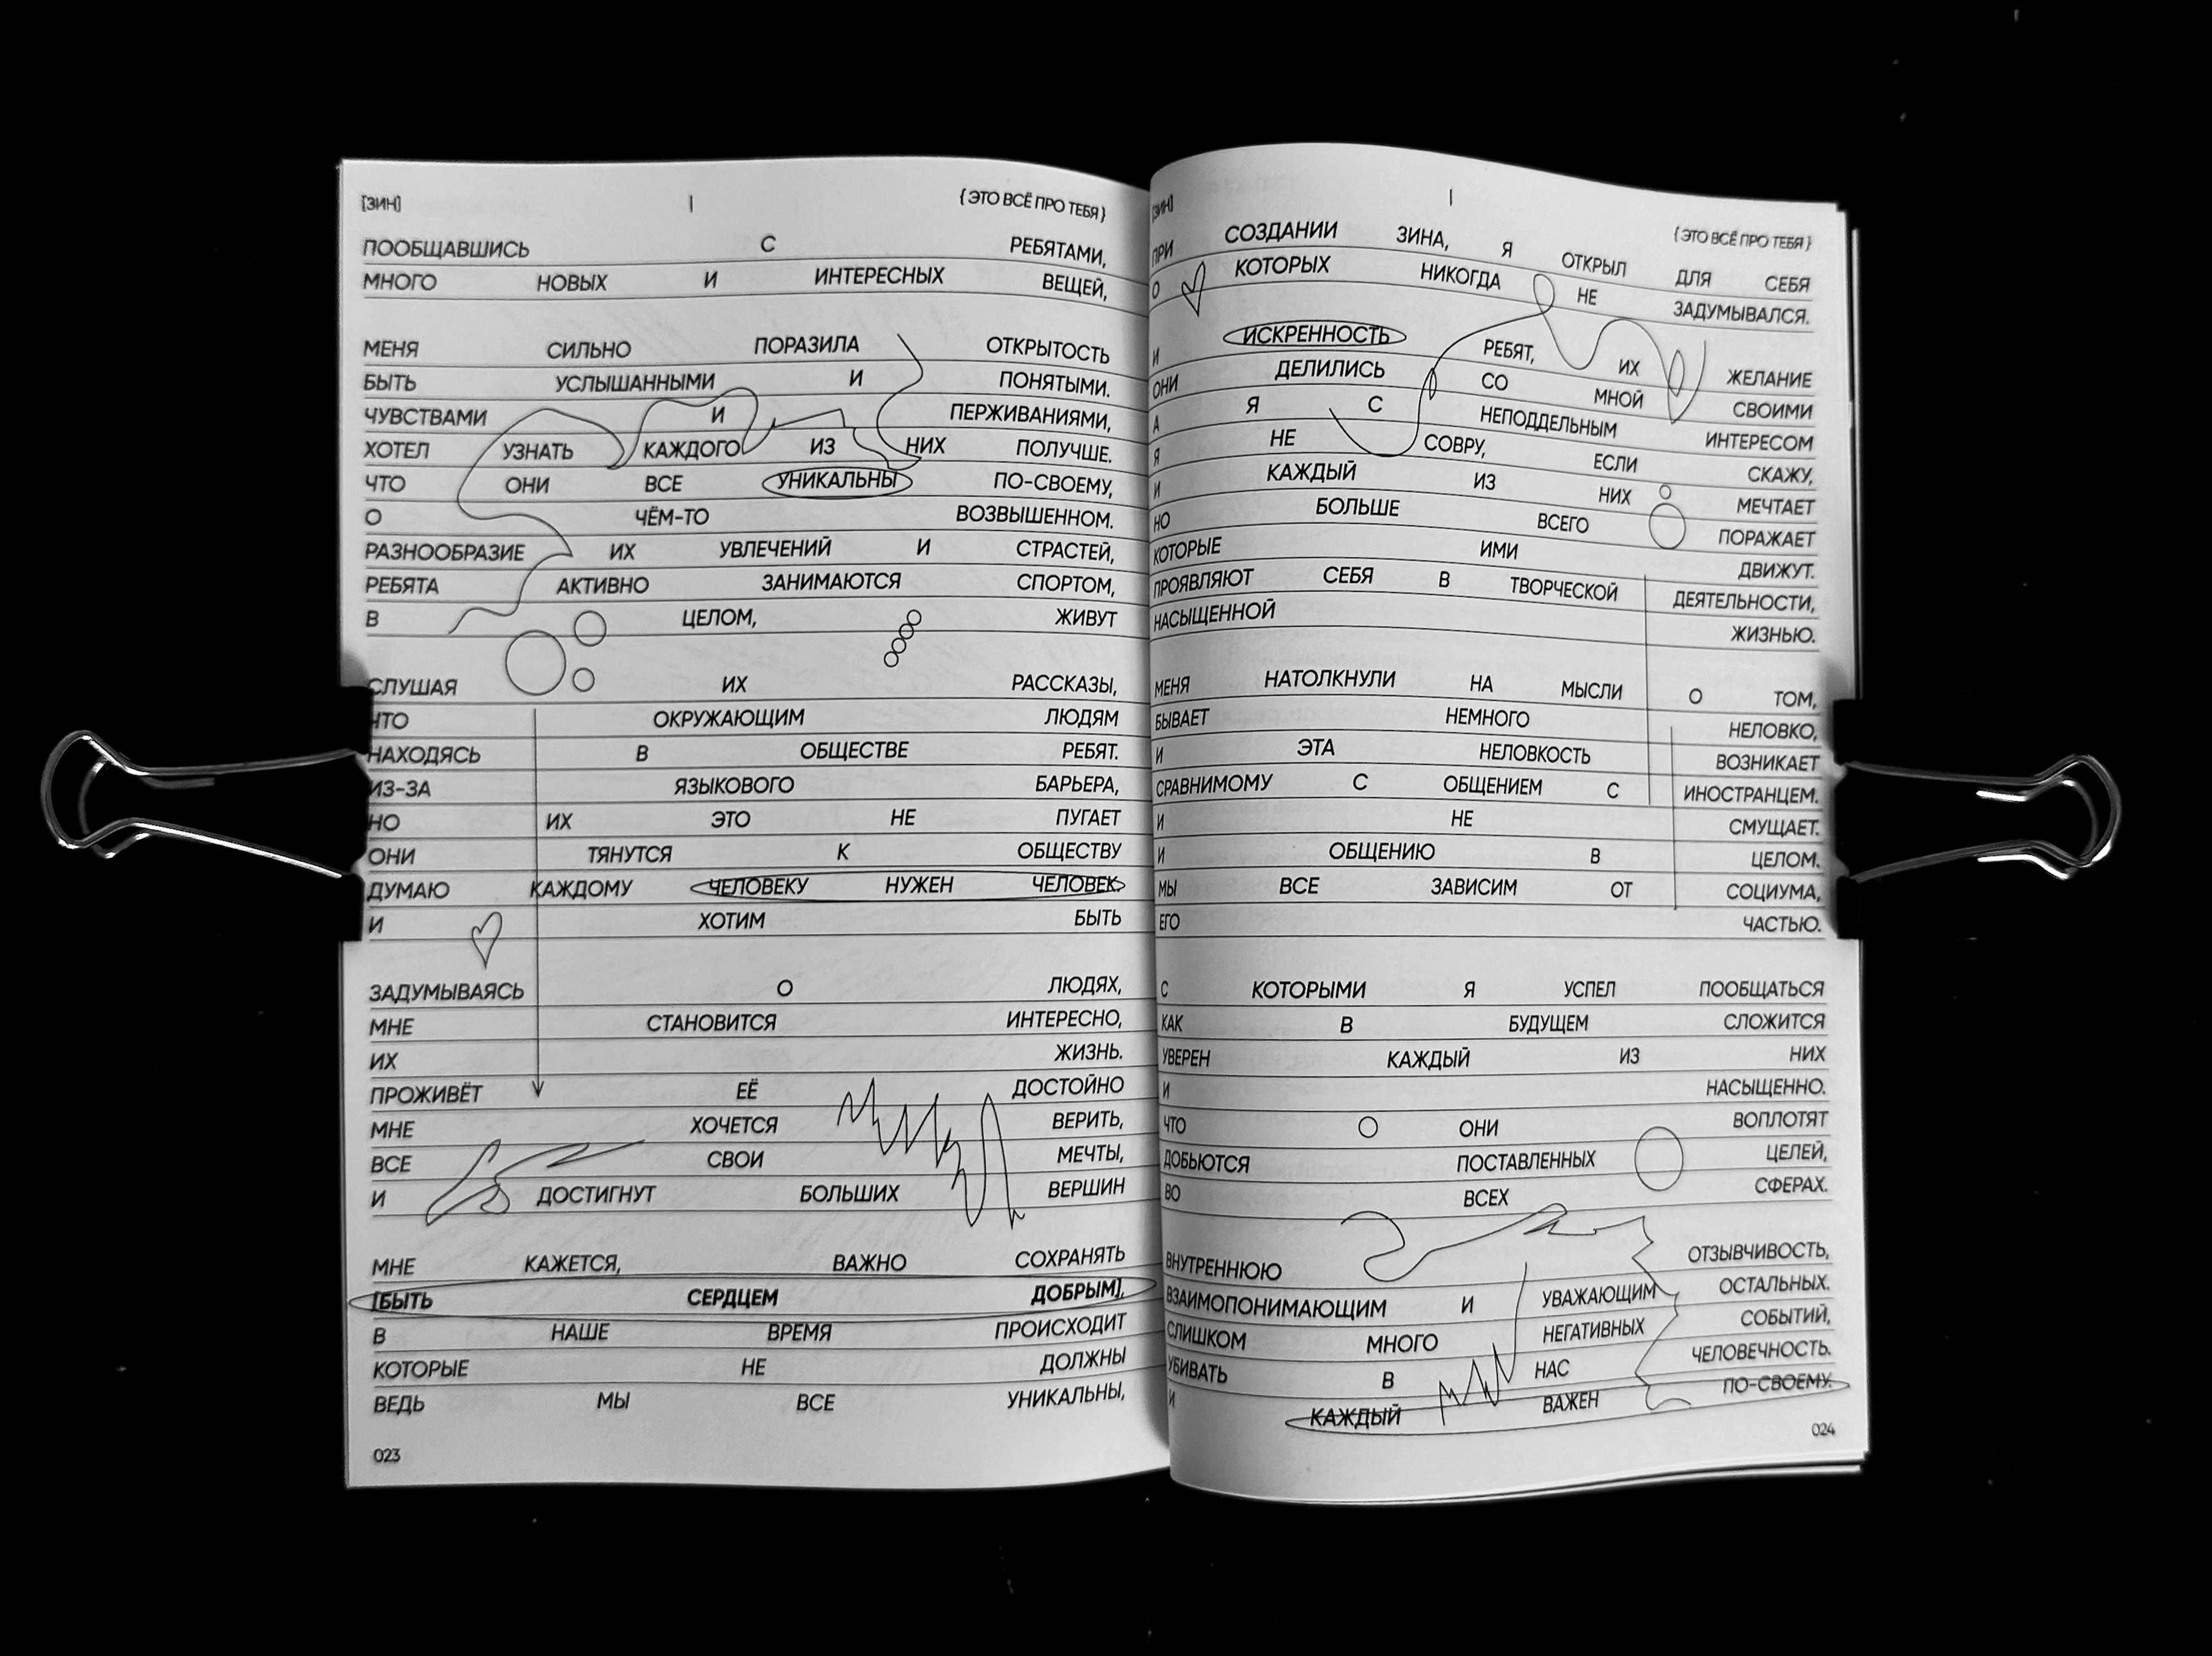 [ЗИН] | { ЭТО ВСЁ ПРО ТЕБЯ } [ЗИН] | { ЭТО ВСЁ ПРО ТЕБЯ }
ПООБЩАВШИСЬ С РЕБЯТАМИ, ПРИ СОЗДАНИИ ЗИНА, Я ОТКРЫЛ ДЛЯ СЕБЯ
МНОГО НОВЫХ И ИНТЕРЕСНЫХ ВЕЩЕЙ, О КОТОРЫХ НИКОГДА НЕ ЗАДУМЫВАЛСЯ.
МЕНЯ СИЛЬНО ПОРАЗИЛА ОТКРЫТОСТЬ И ИСКРЕННОСТЬ РЕБЯТ, ИХ ЖЕЛАНИЕ
БЫТЬ УСЛЫШАННЫМИ И ПОНЯТЫМИ. ОНИ ДЕЛИЛИСЬ СО МНОЙ СВОИМИ
ЧУВСТВАМИ И ПЕРЖИВАНИЯМИ, А Я С НЕПОДДЕЛЬНЫМ ИНТЕРЕСОМ
ХОТЕЛ УЗНАТЬ КАЖДОГО ИЗ НИХ ПОЛУЧШЕ. Я НЕ СОВРУ, ЕСЛИ СКАЖУ,
ЧТО ОНИ ВСЕ УНИКАЛЬНЫ ПО-СВОЕМУ, И КАЖДЫЙ ИЗ НИХ МЕЧТАЕТ
О ЧЁМ-ТО ВОЗВЫШЕННОМ. НО БОЛЬШЕ ВСЕГО ПОРАЖАЕТ
РАЗНООБРАЗИЕ ИХ УВЛЕЧЕНИЙ И СТРАСТЕЙ, КОТОРЫЕ ИМИ ДВИЖУТ.
РЕБЯТА АКТИВНО ЗАНИМАЮТСЯ СПОРТОМ, ПРОЯВЛЯЮТ СЕБЯ В ТВОРЧЕСКОЙ ДЕЯТЕЛЬНОСТИ,
В ЦЕЛОМ, ЖИВУТ НАСЫЩЕННОЙ ЖИЗНЬЮ.
СЛУШАЯ ИХ РАССКАЗЫ, МЕНЯ НАТОЛКНУЛИ НА МЫСЛИ О ТОМ,
ЧТО ОКРУЖАЮЩИМ ЛЮДЯМ БЫВАЕТ НЕМНОГО НЕЛОВКО,
НАХОДЯСЬ В ОБЩЕСТВЕ РЕБЯТ. И ЭТА НЕЛОВКОСТЬ ВОЗНИКАЕТ
ИЗ-ЗА ЯЗЫКОВОГО БАРЬЕРА, СРАВНИМОМУ С ОБЩЕНИЕМ С ИНОСТРАНЦЕМ.
НО ИХ ЭТО НЕ ПУГАЕТ И НЕ СМУЩАЕТ.
ОНИ ТЯНУТСЯ К ОБЩЕСТВУ И ОБЩЕНИЮ В ЦЕЛОМ.
ДУМАЮ КАЖДОМУ ЧЕЛОВЕКУ НУЖЕН ЧЕЛОВЕК МЫ ВСЕ ЗАВИСИМ ОТ СОЦИУМА,
И ХОТИМ БЫТЬ ЕГО ЧАСТЬЮ.
ЗАДУМЫВАЯСЬ О ЛЮДЯХ, С КОТОРЫМИ Я УСПЕЛ ПООБЩАТЬСЯ
МНЕ СТАНОВИТСЯ ИНТЕРЕСНО, КАК В БУДУЩЕМ СЛОЖИТСЯ
ИХ ЖИЗНЬ. УВЕРЕН КАЖДЫЙ ИЗ НИХ
ПРОЖИВЁТ ЕЁ ДОСТОЙНО И НАСЫЩЕННО.
МНЕ ХОЧЕТСЯ ВЕРИТЬ, ЧТО ОНИ ВОПЛОТЯТ
ВСЕ СВОИ МЕЧТЫ, ДОБЬЮТСЯ ПОСТАВЛЕННЫХ ЦЕЛЕЙ,
И ДОСТИГНУТ БОЛЬШИХ ВЕРШИН ВО ВСЕХ СФЕРАХ.
МНЕ КАЖЕТСЯ, ВАЖНО СОХРАНЯТЬ ВНУТРЕННЮЮ ОТЗЫВЧИВОСТЬ,
[БЫТЬ СЕРДЦЕМ ДОБРЫМ], ВЗАИМОПОНИМАЮЩИМ И УВАЖАЮЩИМ ОСТАЛЬНЫХ.
В НАШЕ ВРЕМЯ ПРОИСХОДИТ СЛИШКОМ МНОГО НЕГАТИВНЫХ СОБЫТИЙ,
КОТОРЫЕ НЕ ДОЛЖНЫ УБИВАТЬ В НАС ЧЕЛОВЕЧНОСТЬ.
ВЕДЬ МЫ ВСЕ УНИКАЛЬНЫ, И КАЖДЫЙ ВАЖЕН ПО-СВОЕМУ.
023 024